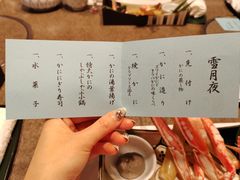 雪月夜
一、先付け
かにの酢の物
一、かに造り
一、焼がに
一、かにの湯葉揚げ
一、特大かにの
しゃぶしゃぶ小鍋
一、かににぎり寿司
一、水菓子